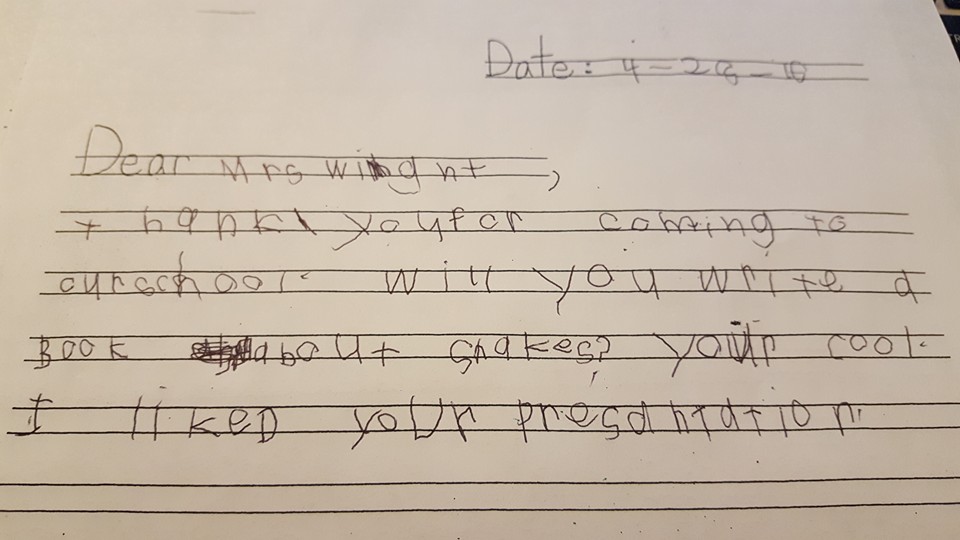 Date: 4-28-16
Dear Mrs Wright,
thank youfor coming to
ourschool. will you write a
Book abount snakes? your cool.
I likeD your presantation.